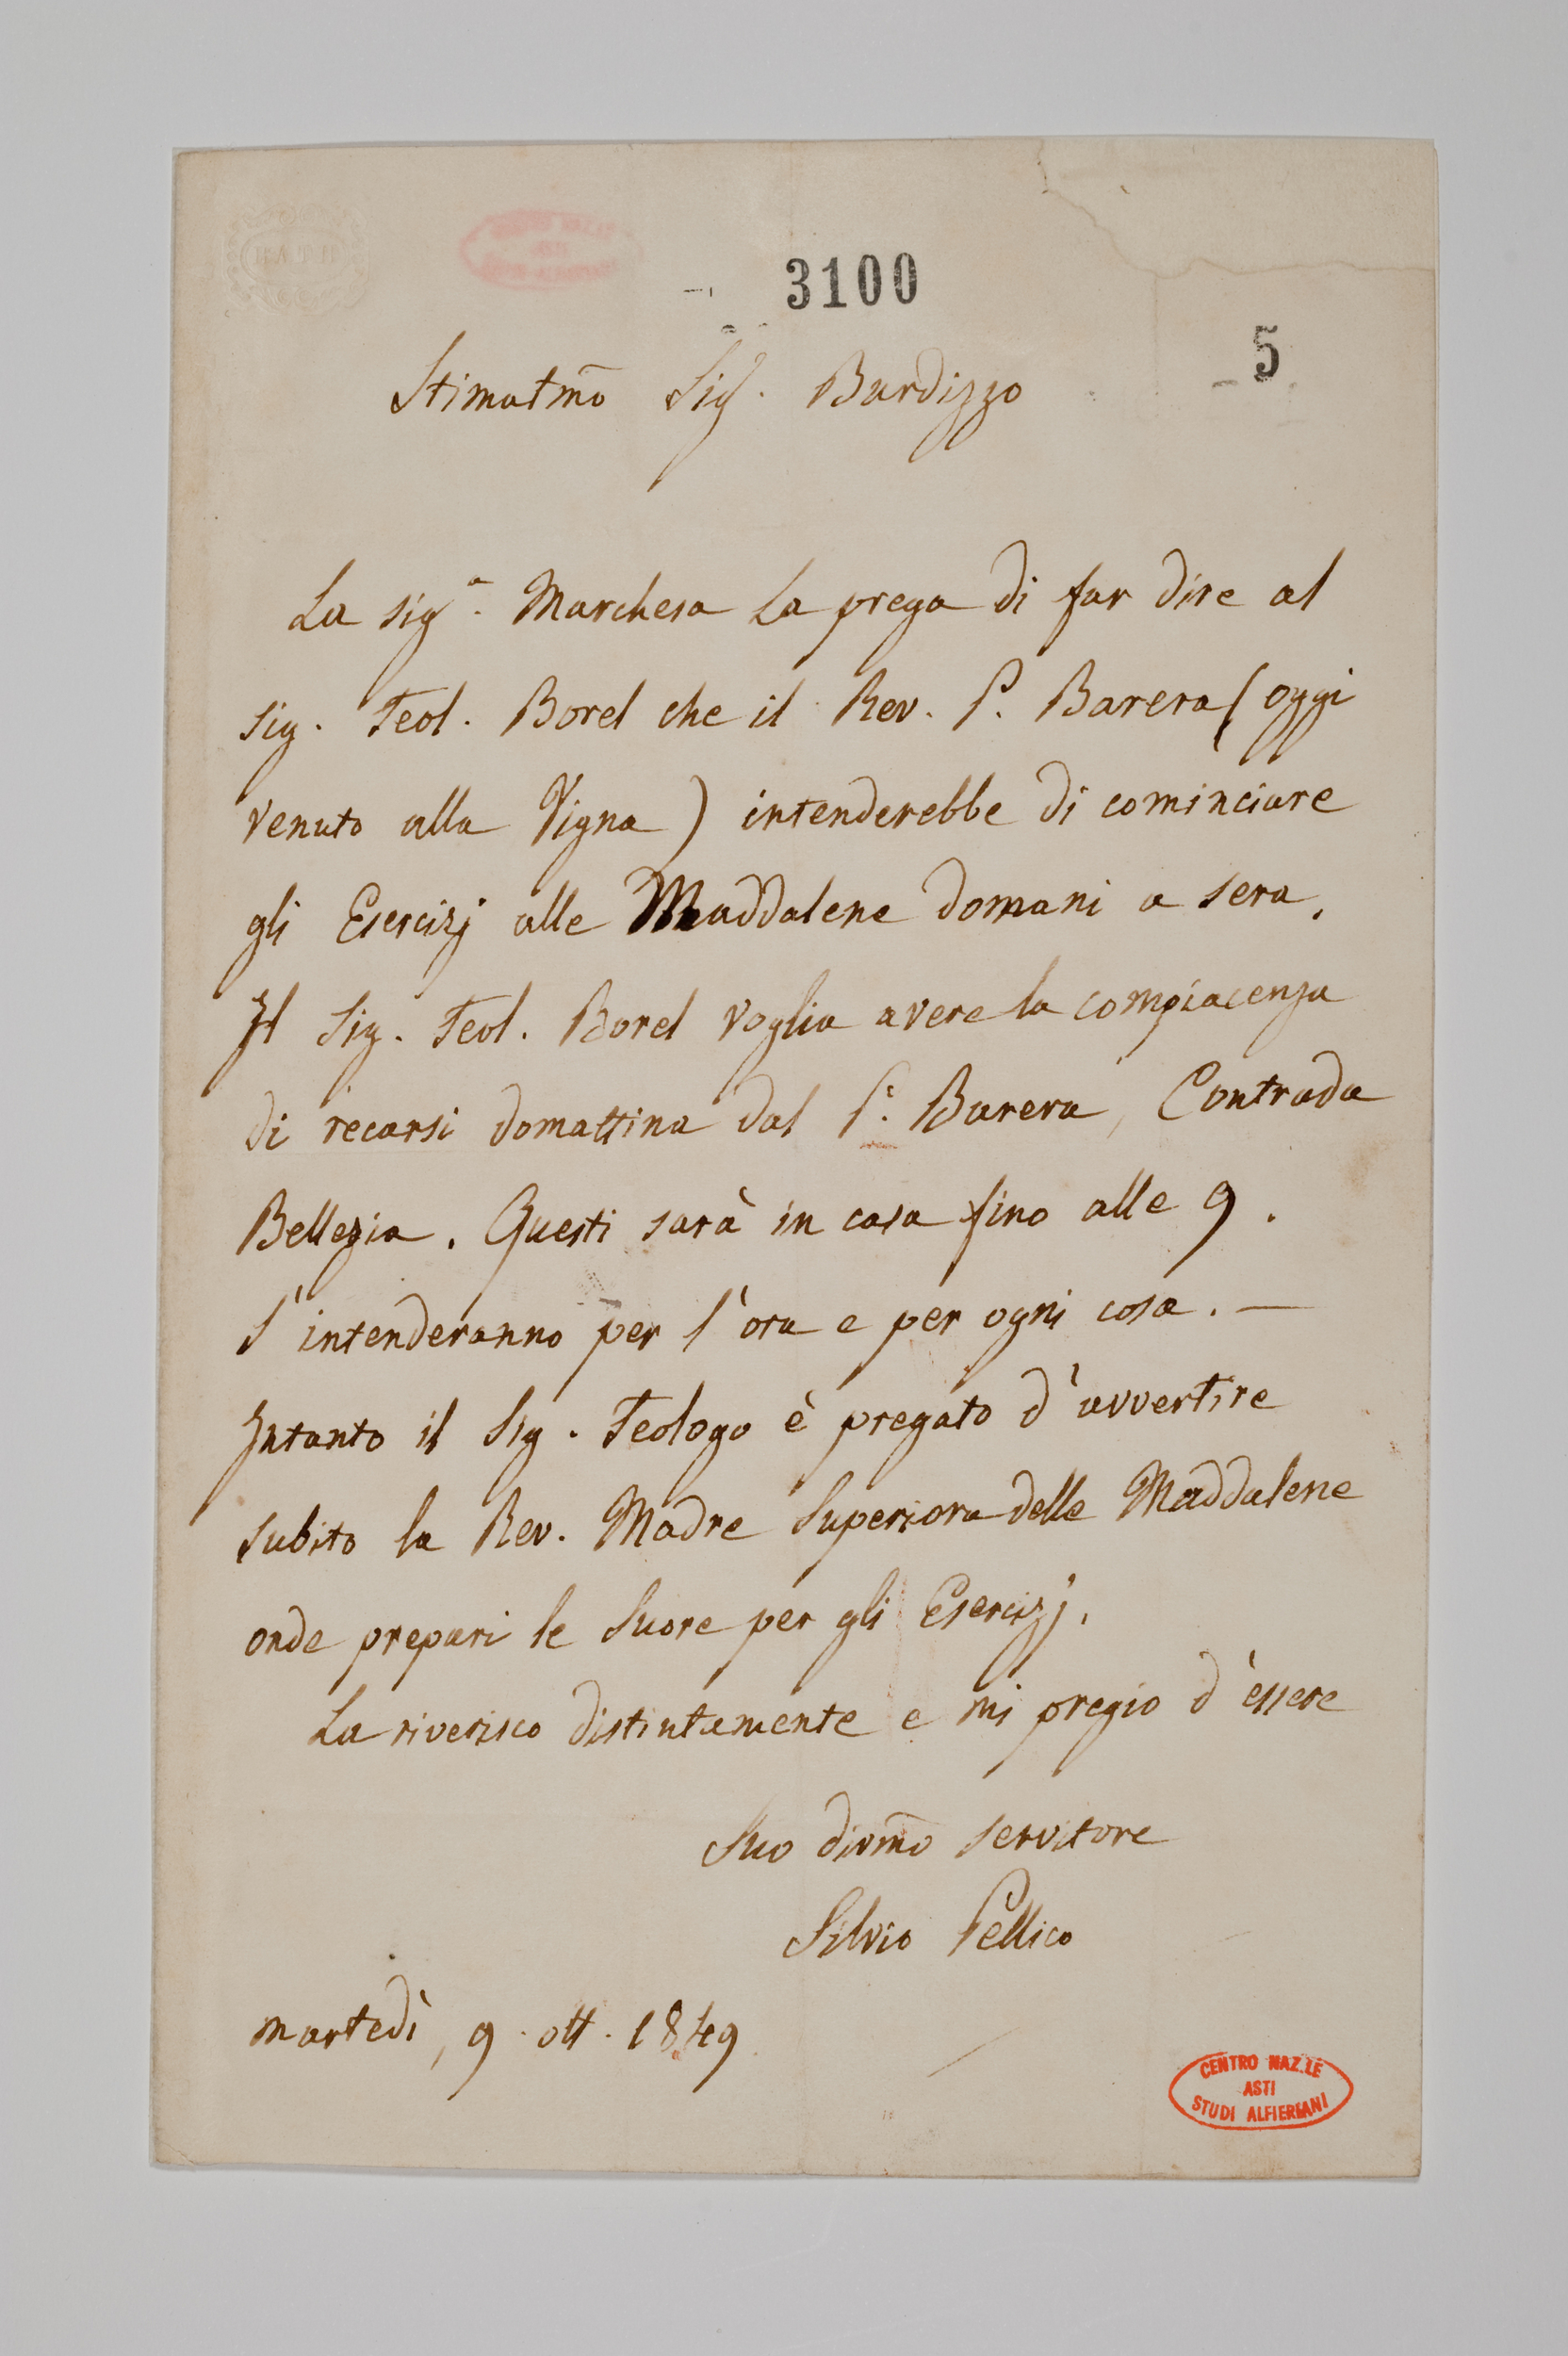 3100
5
Stimatmo Sigr. Burdizzo
La sigra. Marchesa La prega di far dire al
sig. Teol. Borel che il Rev. P. Barera (oggi
venuto alla Vigna) intenderebbe di cominciare
gli Esercizj alle Maddalene domani a sera.
Il Sig. Teol. Borel voglia avere la compiacenza
di recarsi domattina dal P. Barera, Contrada
Bellezia. Questi sarà in casa fino alle 9.
S'intenderanno per l'ora e per ogni cosa. —
Intanto il Sig. Teologo è pregato d'avvertire
subito la Rev. Madre Superiora delle Maddalene
onde prepari le Suore per gli Esercizj.
La riverisco distintamente e mi pregio d'essere
Suo divmo servitore
Silvio Pellico
martedì, 9. ott. 1849
CENTRO NAZ.LE
ASTI
STUDI ALFIERIANI